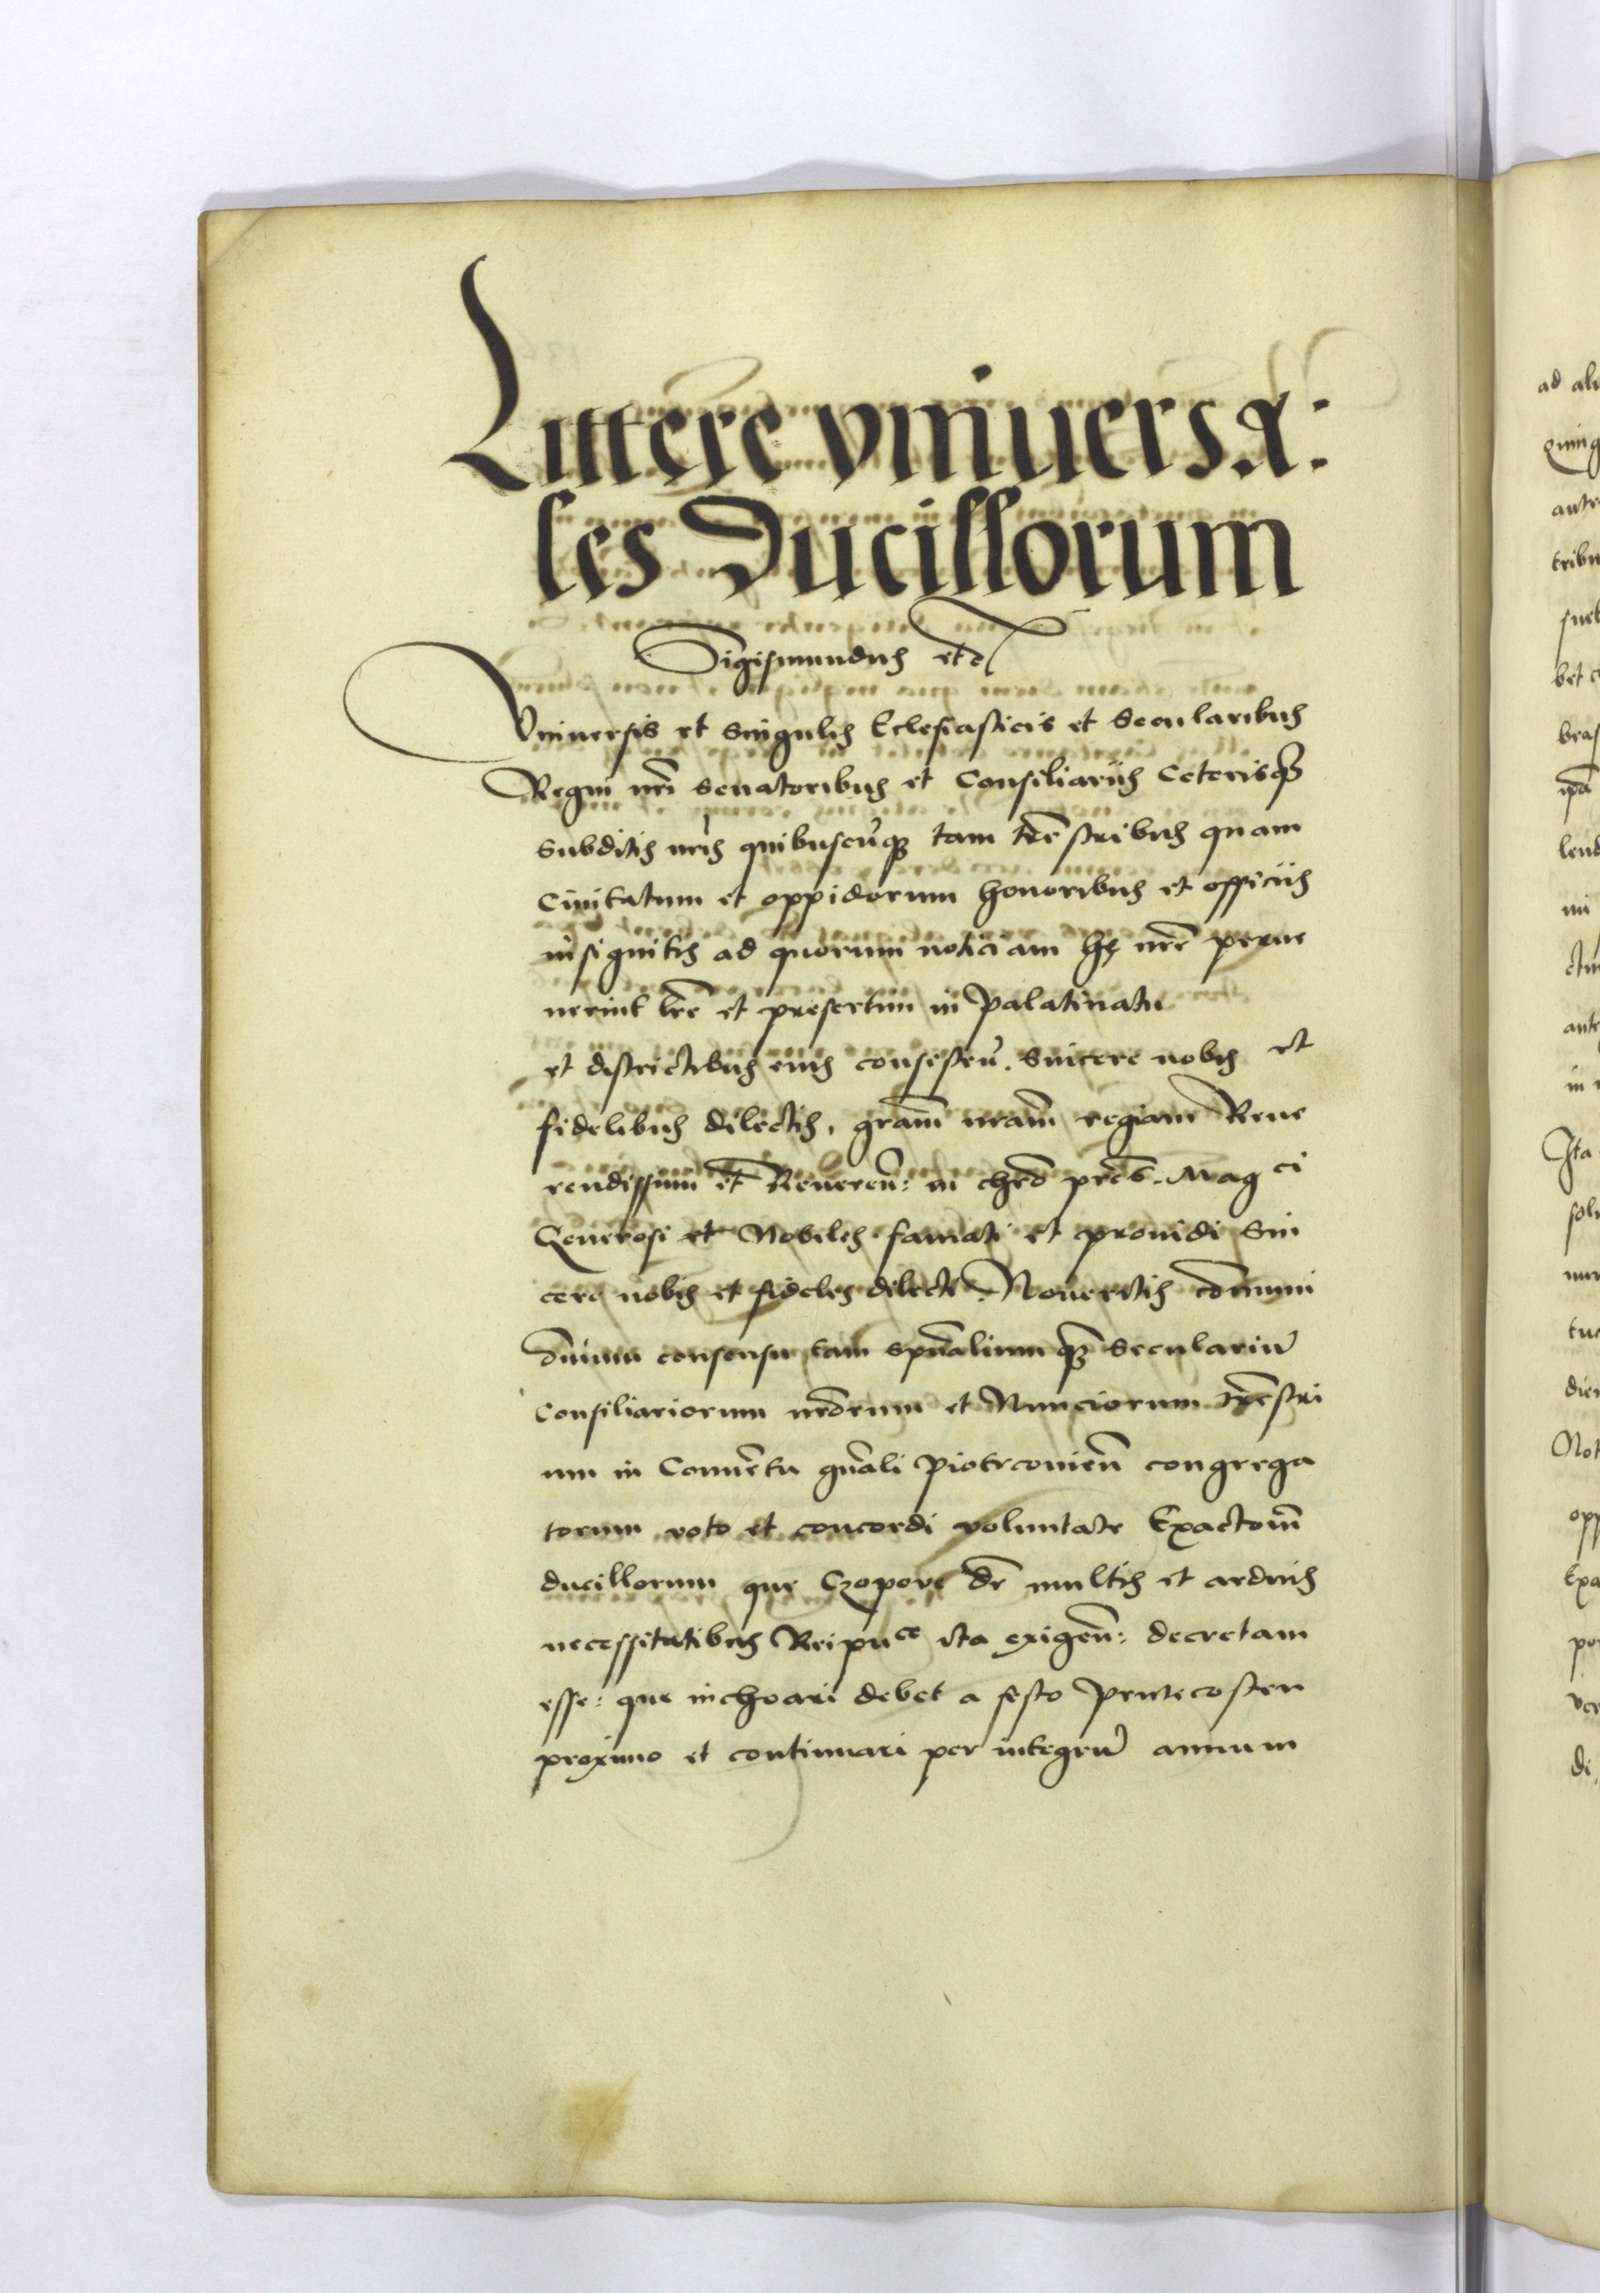 Littere vniuersa:
les Ducillorum
Sigismundus etc
Vniuersis et Singulis Eclesiasticis et Secularibus
Regni nri Senatoribus et Consiliariis Ceterisqз
Subditis nris quibuscūqз tam trēstribus quam
Ciuitatum et oppidorum honoribus et officiis
insignitis ad quorum noticiam hę nrē perue
nerint lrē et presertim in Palatinatu
et districtibus eius consisteñ. Sincere nobis et
fidelibus dilectis, grām nrām regiam Reue
rendissimi et Reueren: in chrō prēs. Mag ci
Generosi et Nobiles famati et prouidi Sin
cere nobis et fideles dilecti. Noueritis cōmuni
ōmium consensu tam spūalium qз Seculariū
Consiliariorum nrōrum et Nunciorum trēstri
um in Conuētu gnāli piotrconieñ congrega
torum voto et concordi voluntate Exactōm
ducillorum que Czopove dr̄ multis et arduis
necessitatibus Reipuce ita exigeñ: decretam
esse: que inchoari debet a festo Pentecosten
proximo et continuari per integrū annum